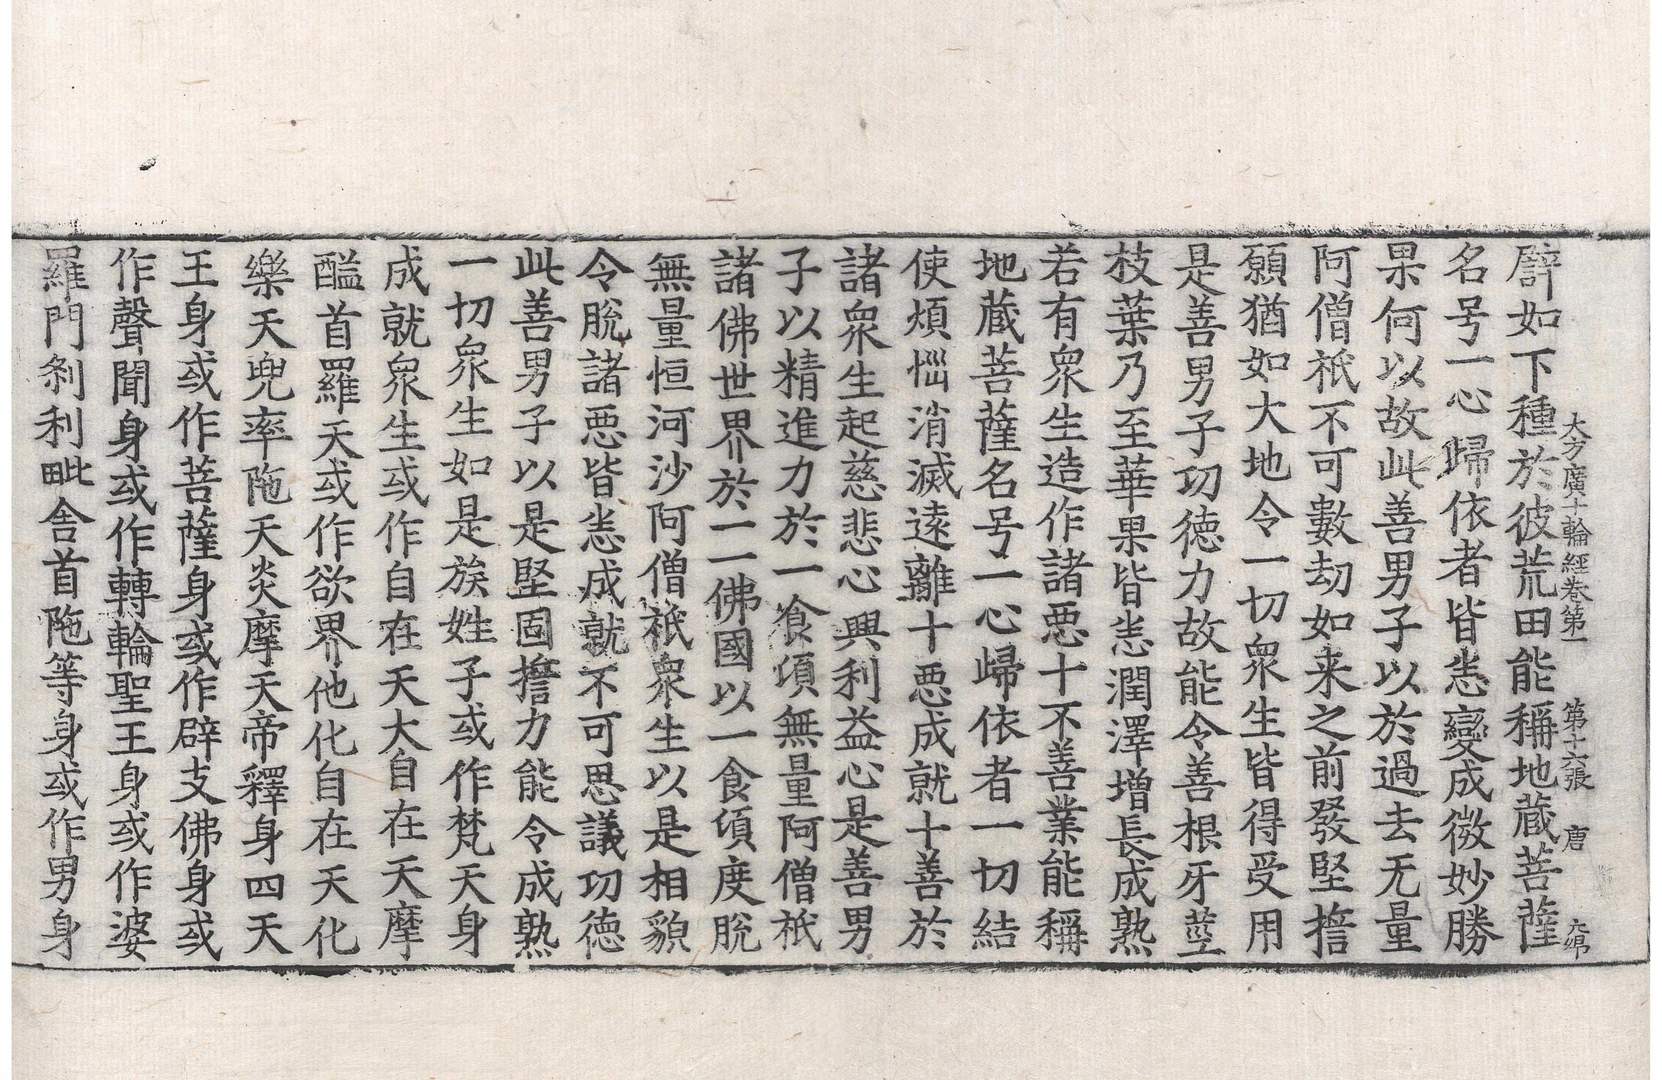 大方廣十輪經卷第一　第十六張　唐
譬如下種於彼荒田能稱地蔵菩薩
名号一心歸依者皆悉變成微妙勝
果何以故此善男子以於過去无量
阿僧祇不可數劫如来之前發堅擔
願猶如大地令一切衆生皆得受用
是善男子功德力故能令善根牙莖
枝葉乃至華果皆悉潤澤增長成熟
若有衆生造作諸惡十不善業能稱
地蔵菩薩名号一心歸依者一切結
使煩惱消滅遠離十惡成就十善於
諸衆生起慈悲心興利益心是善男
子以精進力於一飡頃無量阿僧祇
諸佛世界於一一佛國以一食頃度脫
無量恒河沙阿僧祇衆生以是相貌
令脫諸惡皆悉成就不可思議功德
此善男子以是堅固擔力能令成熟
一切衆生如是族姓子或作梵天身
成就衆生或作自在天大自在天摩
醯首羅天或作欲界他化自在天化
樂天兜率陁天炎摩天帝釋身四天
王身或作菩薩身或作辟支佛身或
作聲聞身或作轉輪聖王身或作婆
羅門刹利毗舍首陁等身或作男身